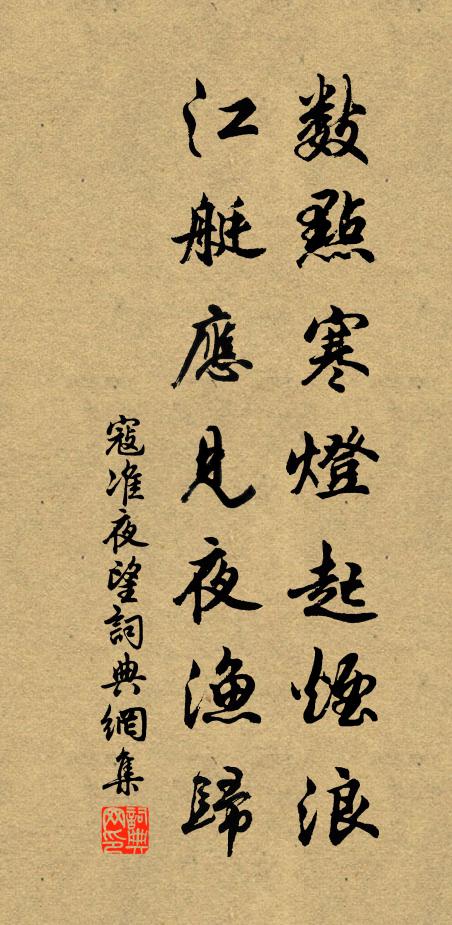 數點寒燈起煙浪
江艇應見夜漁歸
寇准夜望詞典網集
詞典网印